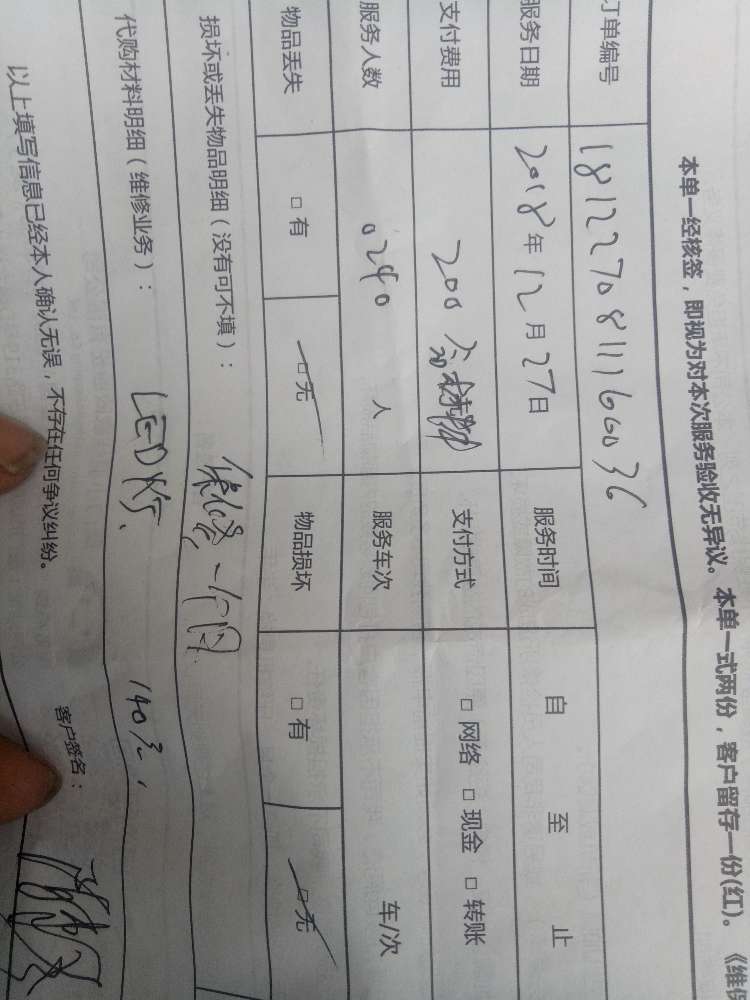 本单一经核签，即视为对本次服务验收无异议。本单一式两份，客户留存一份(红)。《维保
订单编号 1812270811160036
服务日期 2018年12月27日 服务时间 自 至 止
支付费用 200 支付方式 □网络 □现金 □转账
服务人数 0240 人 服务车次 车/次
物品丢失 □有 □无 物品损坏 □有 □无
损坏或丢失物品明细（没有可不填）： 保修一个月
代购材料明细（维修业务）： LED灯、 140元、
以上填写信息已经本人确认无误，不存在任何争议纠纷。 客户签名：